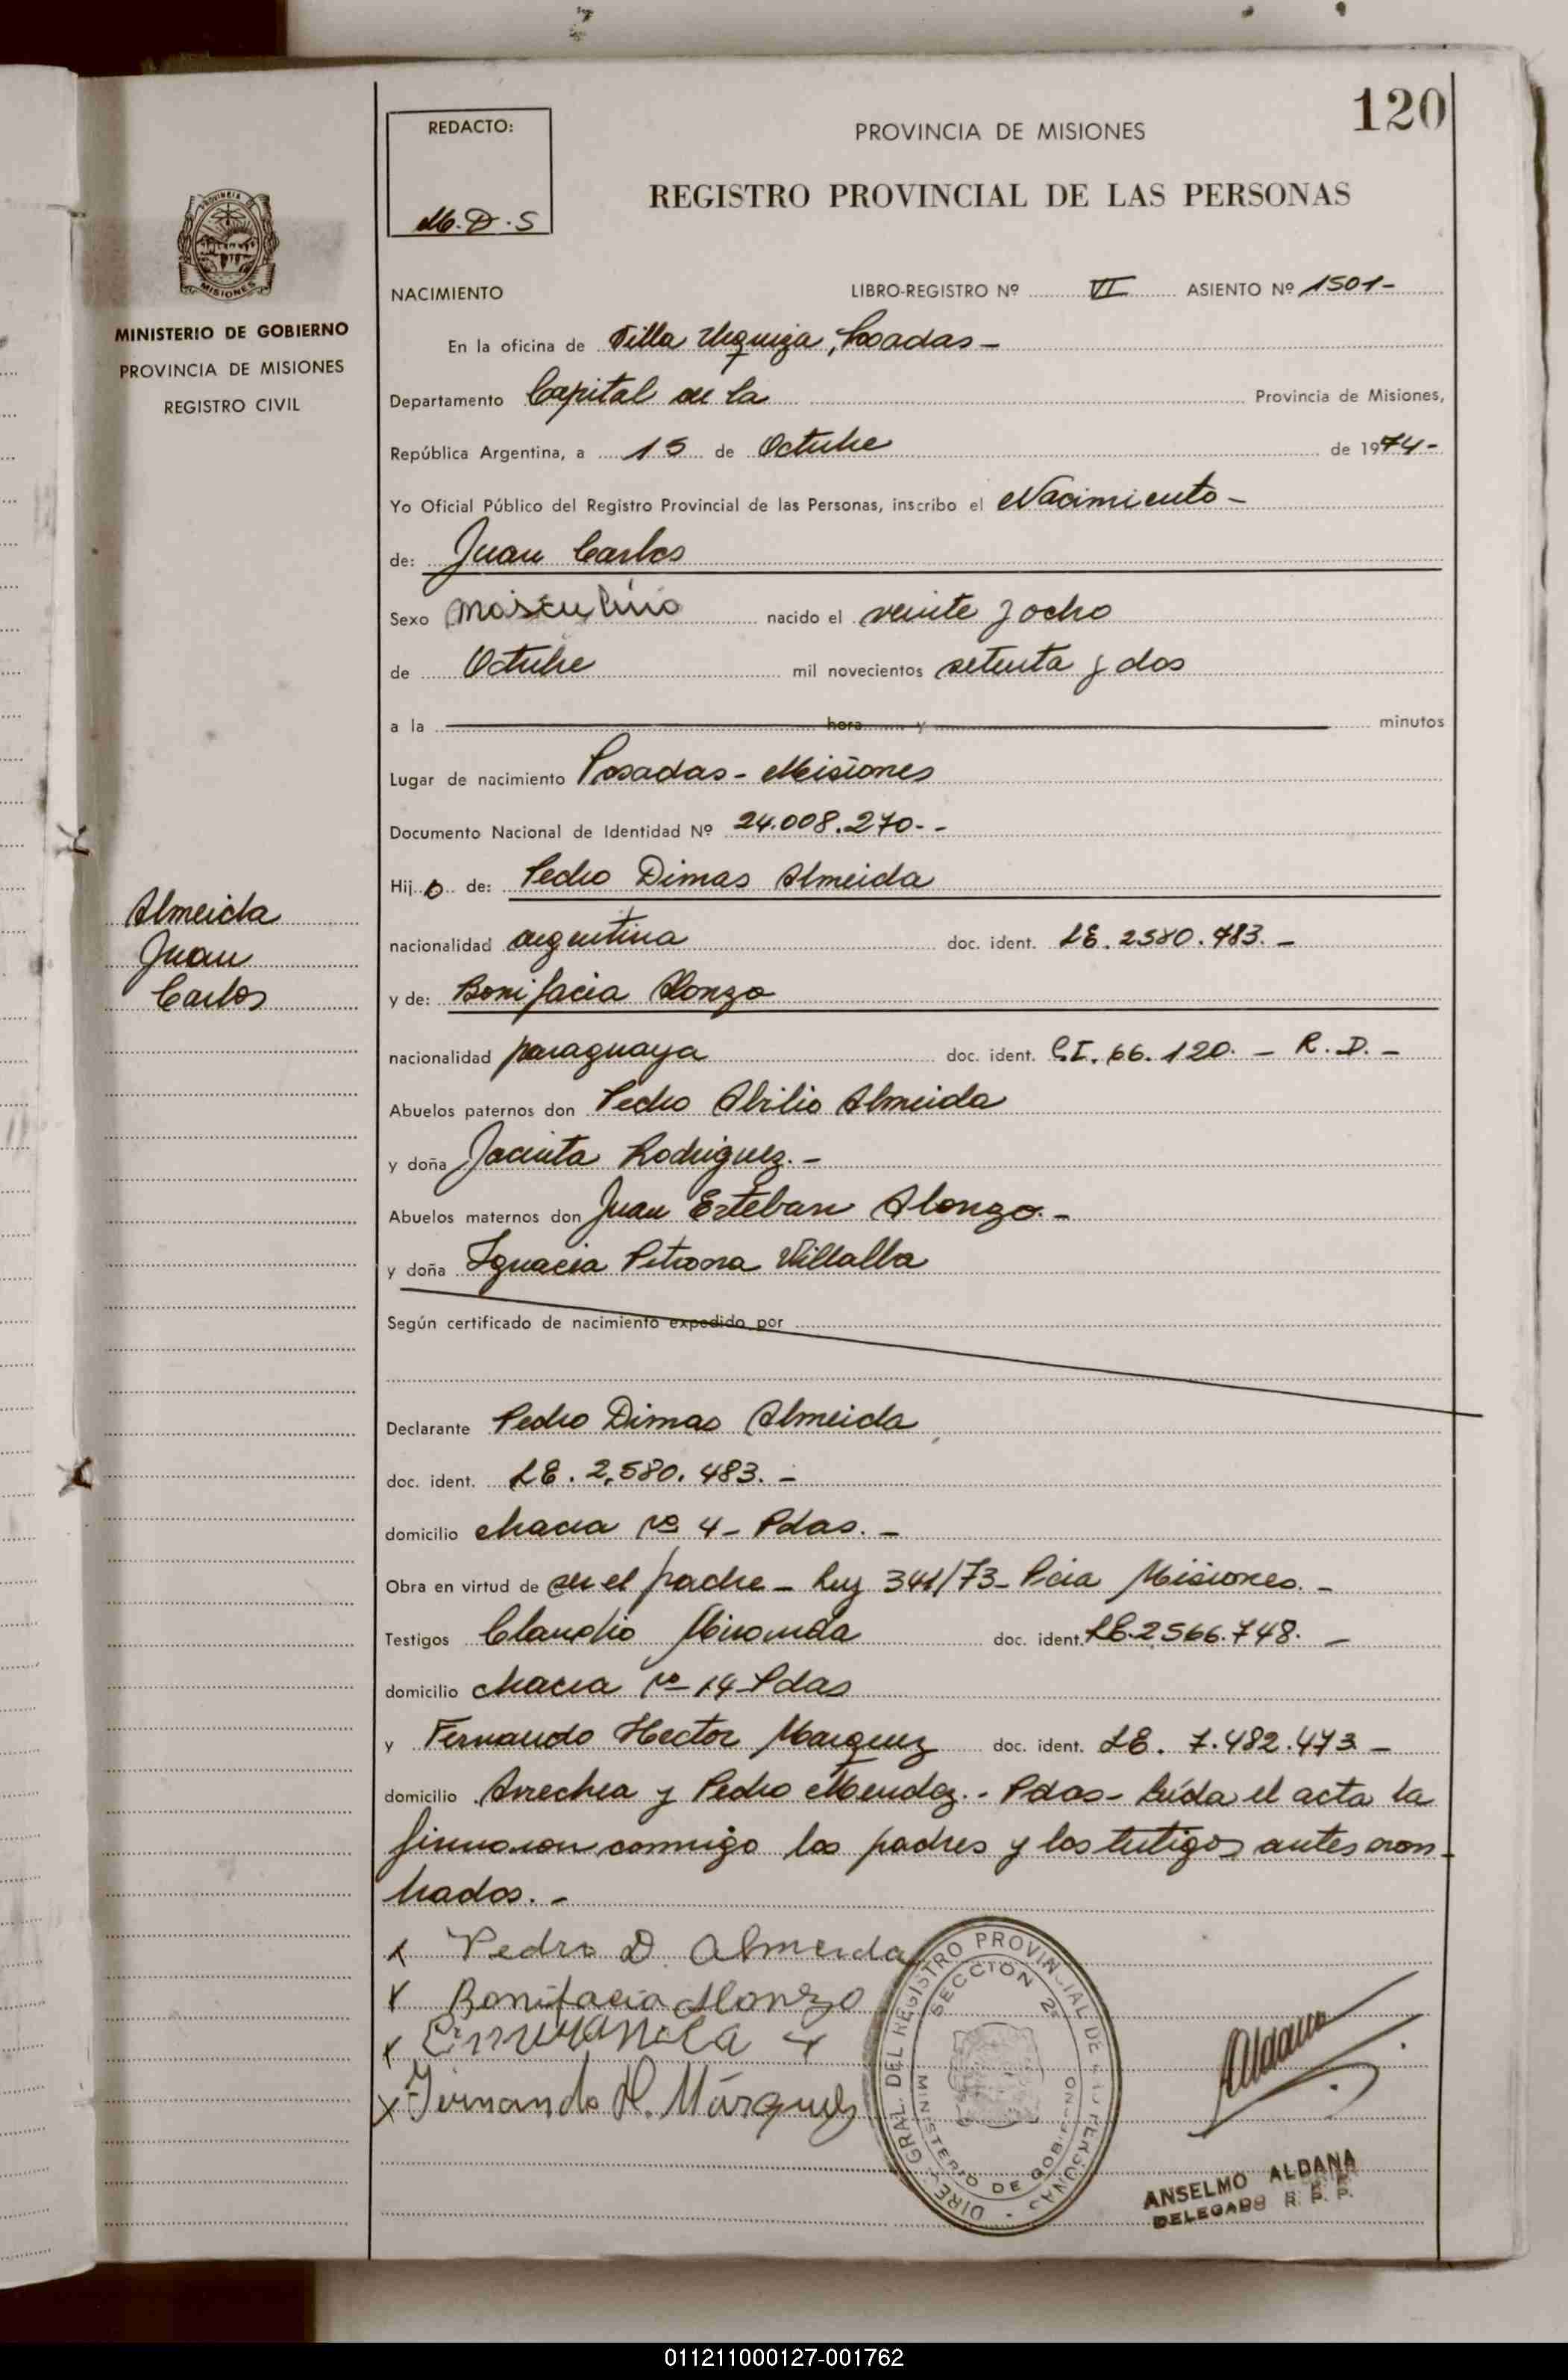 120
REDACTO:
M.D.S
PROVINCIA DE MISIONES
REGISTRO PROVINCIAL DE LAS PERSONAS
MISIONES
MINISTERIO DE GOBIERNO
PROVINCIA DE MISIONES
REGISTRO CIVIL
NACIMIENTO LIBRO-REGISTRO Nº VI ASIENTO Nº 1501-
En la oficina de Villa Urquiza, Posadas -
Departamento Capital de la Provincia de Misiones,
República Argentina, a 15 de Octubre de 1974-
Yo Oficial Público del Registro Provincial de las Personas, inscribo el Nacimiento -
de: Juan Carlos
Sexo masculino nacido el veinte y ocho
de Octubre mil novecientos setenta y dos
a la hora y minutos
Lugar de nacimiento Posadas - Misiones
Documento Nacional de Identidad Nº 24.008.270. -
Hijo de: Pedro Dimas Almeida
Almeida
Juan
Carlos
nacionalidad argentina doc. ident. LE. 2580.483. -
y de: Bonifacia Alonzo
nacionalidad paraguaya doc. ident. C.I. 66.120. - R.D. -
Abuelos paternos don Pedro Abilio Almeida
y doña Jacinta Rodriguez. -
Abuelos maternos don Juan Esteban Alonzo. -
y doña Ignacia Petrona Villalba
Según certificado de nacimiento expedido por
Declarante Pedro Dimas Almeida
doc. ident. LE. 2,580.483. -
domicilio chacra nº 4 - Pdas. -
Obra en virtud de ser el padre - Ley 341/73 - Pcia Misiones. -
Testigos Claudio Miranda doc. ident. LE. 2566.748. -
domicilio chacra nº 14 Pdas
y Fernando Hector Marquez doc. ident. LE. 7.482.473 -
domicilio Arrechea y Pedro Mendez. - Pdas - Leída el acta la
firmaron conmigo los padres y los testigos antes nom-
brados. -
x Pedro D. Almeida
x Bonifacia Alonzo
x
x Fernando H. Márquez
DIREC. GRAL. DEL REGISTRO PROVINCIAL DE LAS PERSONAS
SECCION 2ª
MINISTERIO DE GOBIERNO
Aldana
ANSELMO ALDANA
DELEGADO R. P. P.
011211000127-001762